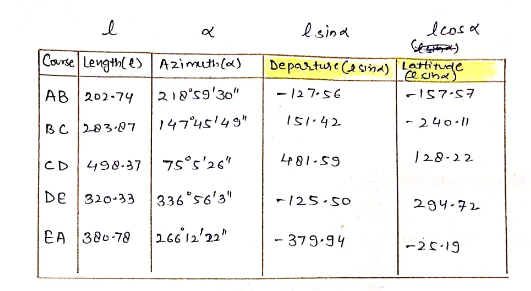 l α l sinα l cosα
Course Length(l) Azimuth(α) Departure(l sinα) Lattitude (l cosα)
AB 202.74 218°59'30" -127.56 -157.57
BC 283.87 147°45'49" 151.42 -240.11
CD 498.37 75°5'26" 481.59 128.22
DE 320.33 336°56'3" -125.50 294.72
EA 380.78 266°12'22" -379.94 -25.19